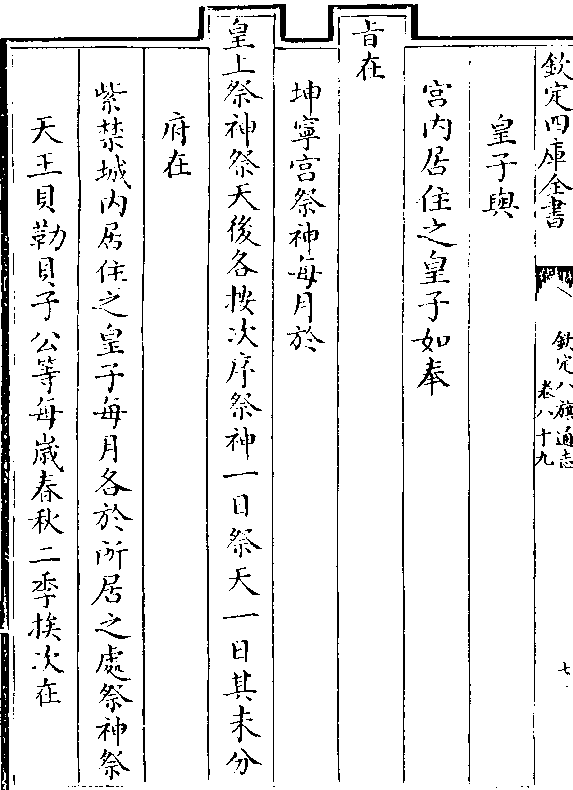 欽定四庫全書
欽定八旗通志
卷八十九
七
皇子與
宮内居住之皇子如奉
旨在
坤寧宮祭神每月於
皇上祭神祭天後各按次序祭神一日祭天一日其未分
府在
紫禁城内居住之皇子每月各於所居之處祭神祭
天王貝勒貝子公等每歲春秋二季挨次在